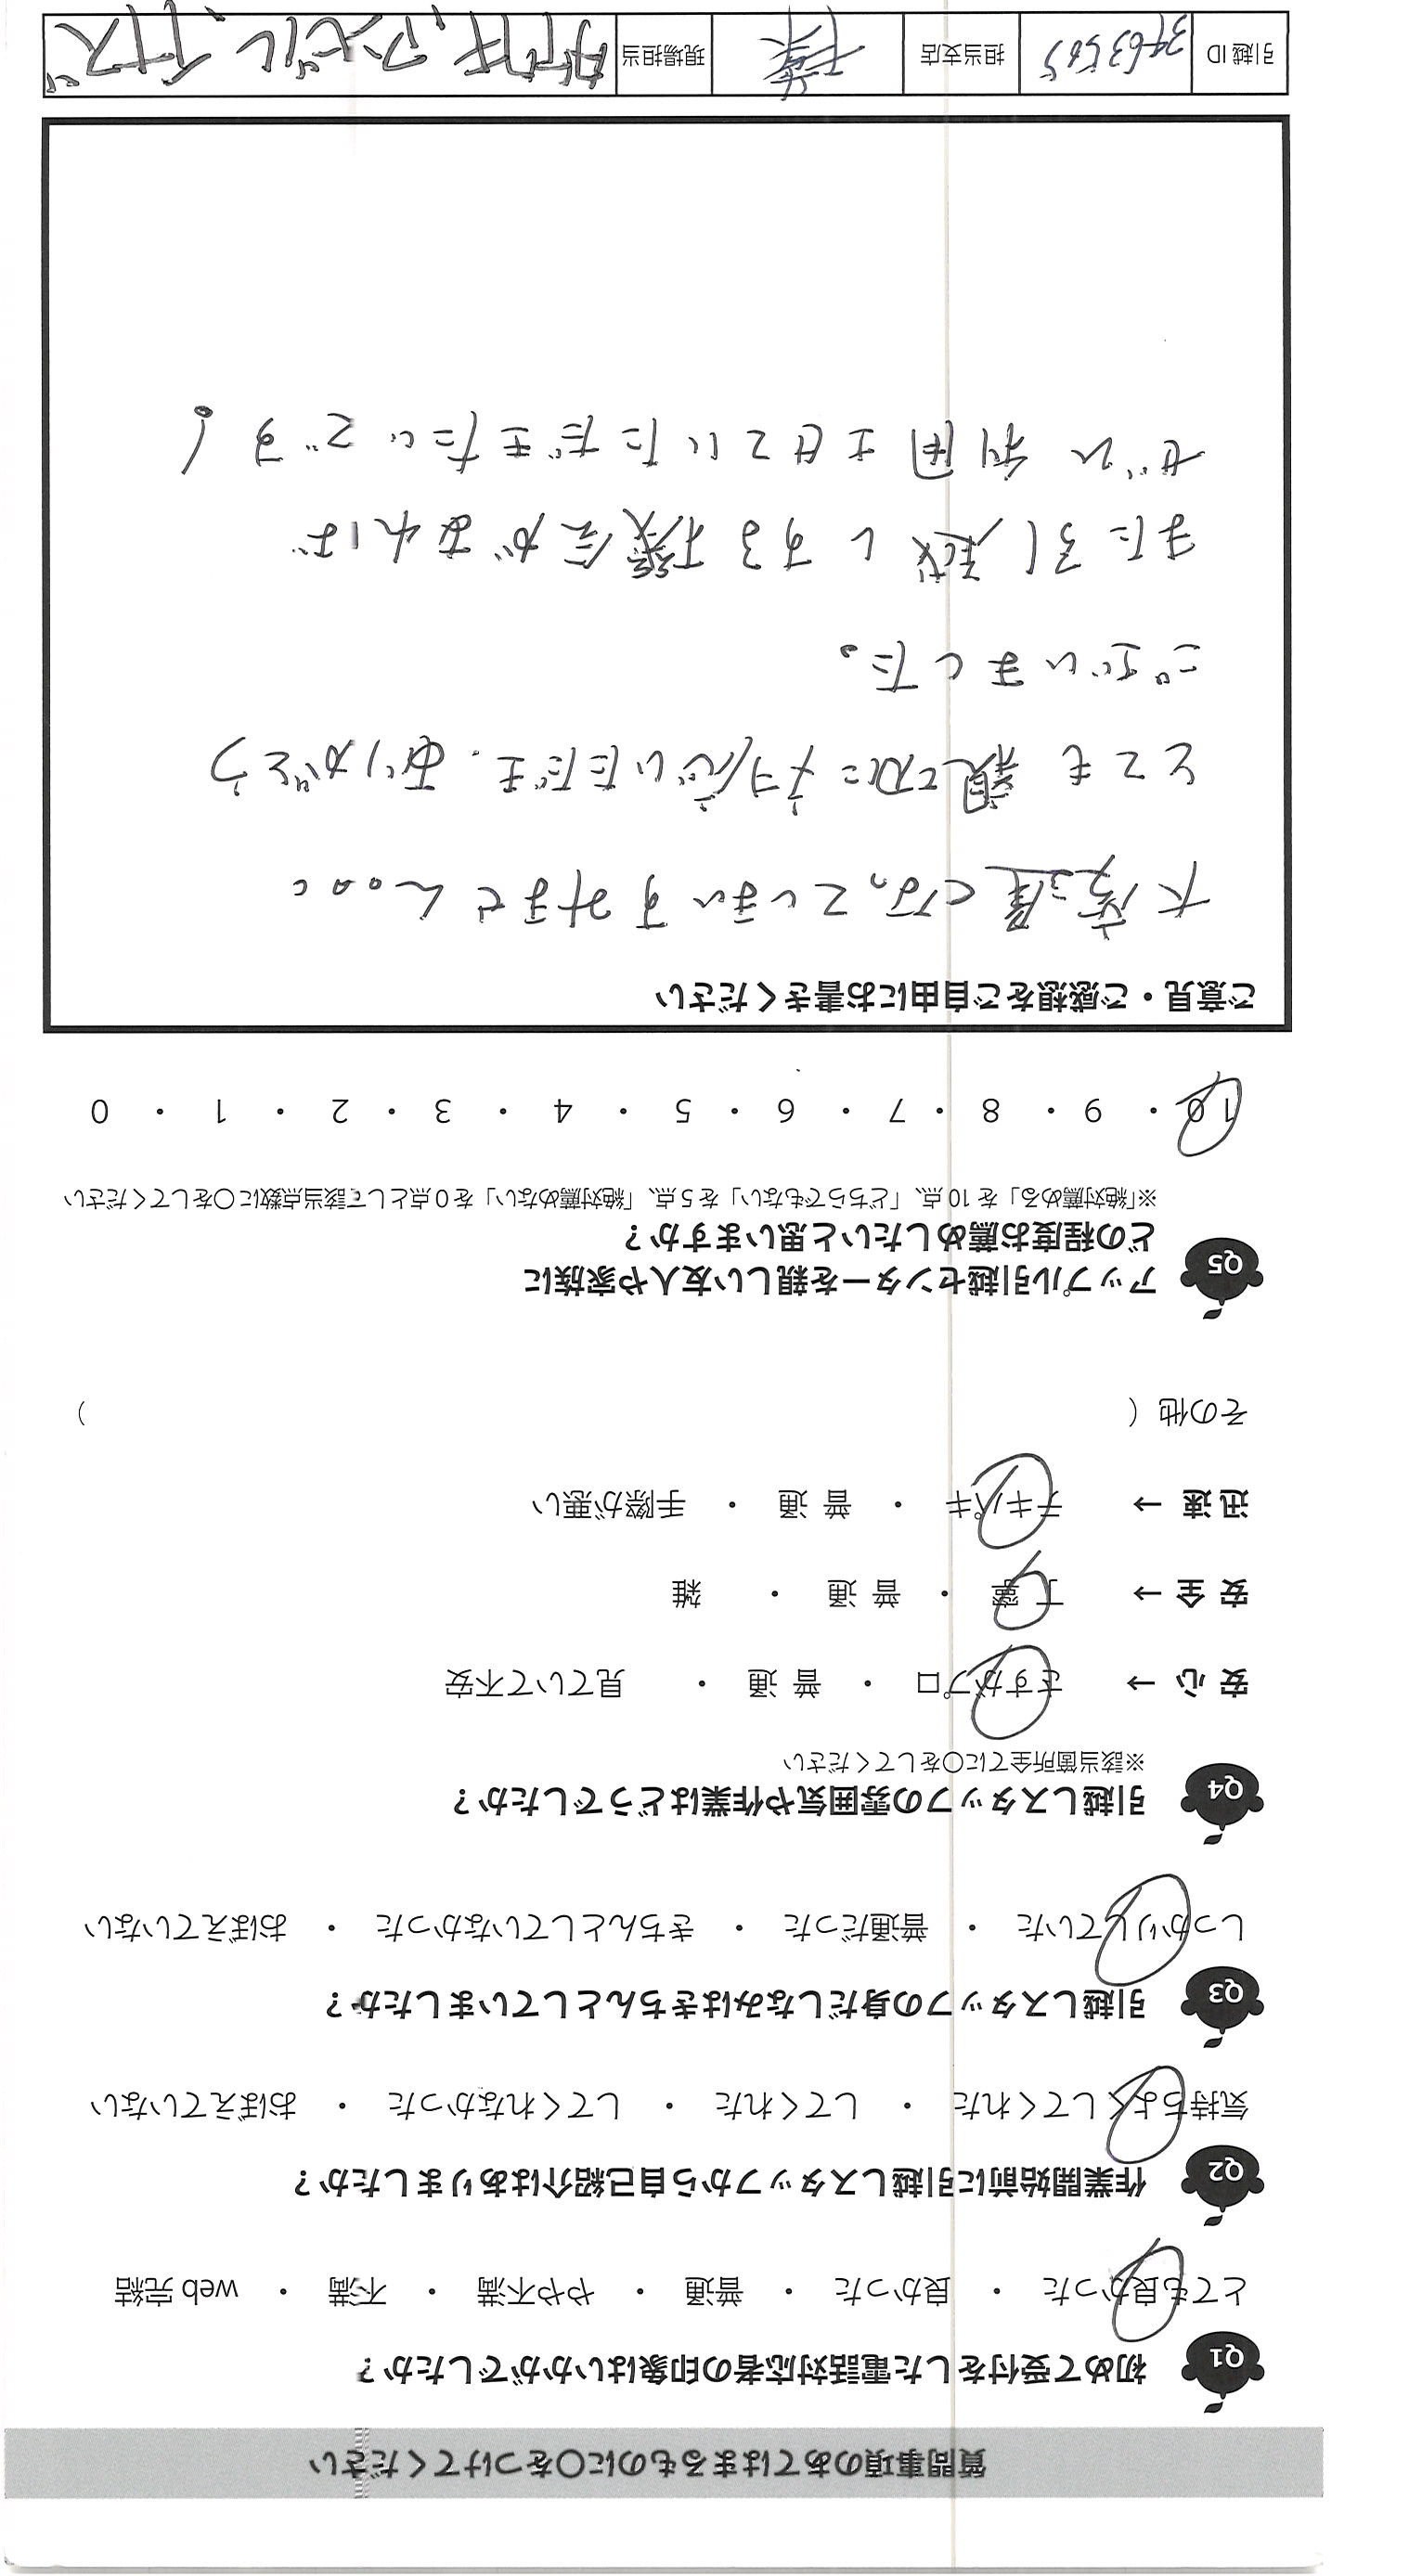 質問事項のあてはまるものに○をつけてください
Q1 初めて受付をした電話対応者の印象はいかがでしたか？
とても良かった ・ 良かった ・ 普通 ・ やや不満 ・ 不満 ・ web 完結
Q2 作業開始前に引越しスタッフから自己紹介はありましたか？
気持ちよくしてくれた ・ してくれた ・ してくれなかった ・ おぼえていない
Q3 引越しスタッフの身だしなみはきちんとしていましたか？
しっかりしていた ・ 普通だった ・ きちんとしていなかった ・ おぼえていない
Q4 引越しスタッフの雰囲気や作業はどうでしたか？
※該当箇所全てに○をしてください
安 心 → さすがプロ ・ 普 通 ・ 見ていて不安
安 全 → 丁寧 ・ 普 通 ・ 雑
迅 速 → テキパキ ・ 普 通 ・ 手際が悪い
その他 （ ）
Q5 アップル引越センターを親しい友人や家族に
どの程度お薦めしたいと思いますか？
※「絶対薦める」を 10 点、「どちらでもない」を 5 点、「絶対薦めない」を 0 点として該当点数に○をしてください
10 ・ 9 ・ 8 ・ 7 ・ 6 ・ 5 ・ 4 ・ 3 ・ 2 ・ 1 ・ 0
ご意見・ご感想をご自由にお書きください
大変遅くなっていまいすみません。。。
とても親切に対応いただき、ありがとう
ございました。
また引っ越しする機会があれば
ぜひ利用させていただきたいです！
引越 ID 担当支店 千葉 現場担当